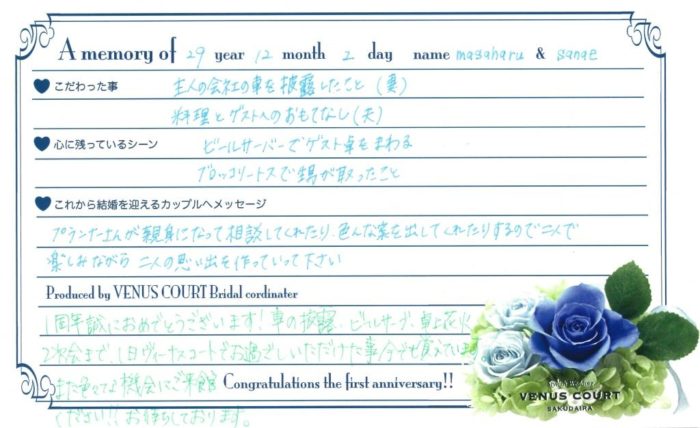 A memory of 29 year 12 month 2 day name masaharu & sanae
こだわった事 主人の会社の車を披露したこと(妻)
料理とゲストへのおもてなし(夫)
心に残っているシーン ビールサーバーでゲスト卓をまわる
ブロッコリートスで甥が取ったこと
これから結婚を迎えるカップルへメッセージ
プランナーさんが親身になって相談してくれたり、色んな案を出してくれたりするので二人で
楽しみながら 二人の思い出を作っていって下さい
Produced by VENUS COURT Bridal cordinater
1周年誠におめでとうございます!車の披露、ビールサーブ、卓上花火
2次会まで、1日ヴィーナスコートでお過ごしいただけた事今でも覚えています
また色々な機会にご来館 Congratulations the first anniversary!!
ください!!お待ちしております。
VENUS COURT
SAKUDAIRA